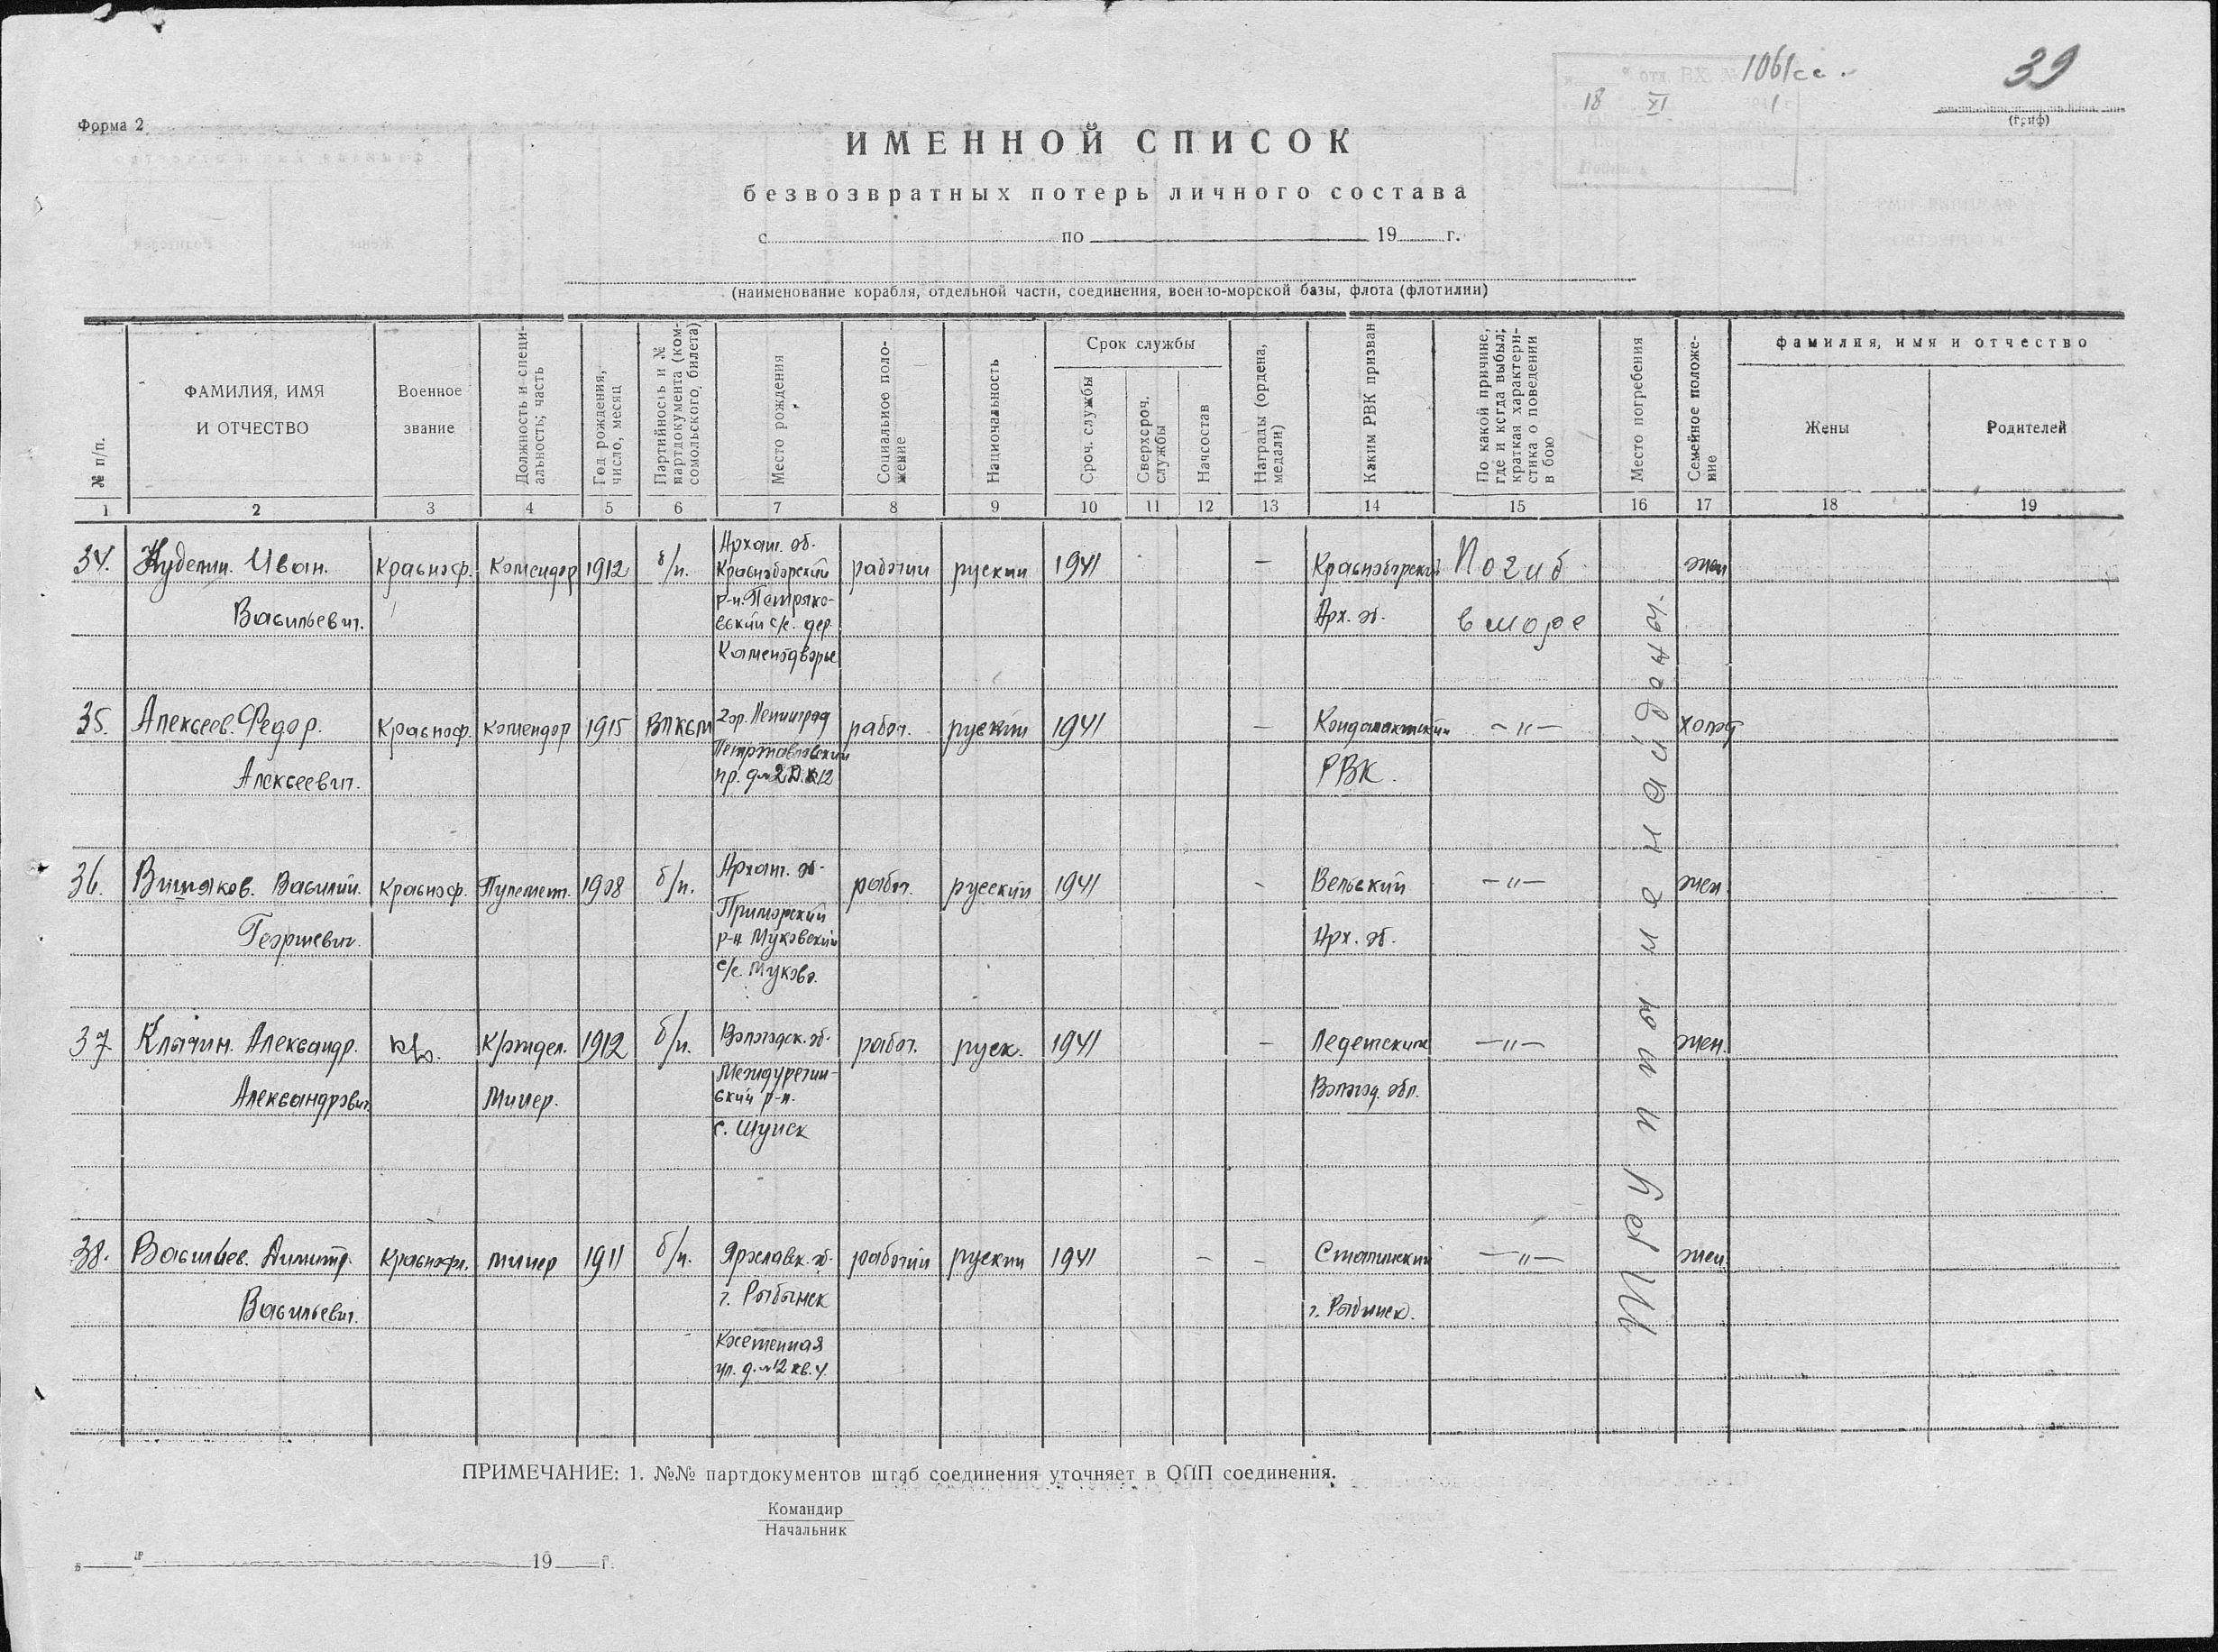 отд. ВХ. № 1061сс.
18 XI 1941
39
(гриф)
Форма 2
ИМЕННОЙ СПИСОК
безвозвратных потерь личного состава
с по 19 г.
(наименование корабля, отдельной части, соединения, военно-морской базы, флота (флотилии)
№ п/п.
ФАМИЛИЯ, ИМЯ
И ОТЧЕСТВО
Военное
звание
Должность и специ-
альность; часть
Год рождения,
число, месяц
Партийность и №
партдокумента (ком-
сомольского билета)
Место рождения
Социальное поло-
жение
Национальность
Срок службы
Сроч. службы
Сверхсроч.
службы
Начсостав
Награды (ордена,
медали)
Каким РВК призван
По какой причине,
где и когда выбыл;
краткая характери-
стика о поведении
в бою
Место погребения
Семейное положе-
ние
фамилия, имя и отчество
Жены
Родителей
1 2 3 4 5 6 7 8 9 10 11 12 13 14 15 16 17 18 19
34. Иван. Красноф. Комендор 1912 б/п. Архан. об. рабочий руский 1941 — Красноборский Погиб жен
Красноборский
Васильевич. р-н. Арх. об. в море
с/с. дер.
35. Алексеев. Федор. Красноф. комендор 1915 ВЛКСМ гор. Ленинград рабоч. руский 1941 — Кондалакшский —"— холост
Алексеевич. пр. д. РВК.
36. Вишяков. Василий. Красноф. Пулемет. 1908 б/п. Архан. об. рабоч. русский 1941 - Вельский —"— жен.
Приморский
Георгиевич. р-н Муковский Арх. об.
с/с. Муково.
37 Клычин. Александр. кф. К/отдел. 1912 б/п. Вологодск. об. рабоч. руск. 1941 — Ледетский —"— жен.
Междуречин-
Александрович. Минер. ский р-н. Волог. обл.
с. Шуйск
38. Васильев. Димитр. Краснофл. минер 1911 б/п. Ярославск. об. рабочий руский 1941 — - Сталинский —"— жен.
Васильевич. г. Рыбынск г. Рыбинск.
ул. д. №12 кв. 4.
Место не найден
ПРИМЕЧАНИЕ: 1. №№ партдокументов штаб соединения уточняет в ОПП соединения.
Командир
Начальник
„ " 19 г.